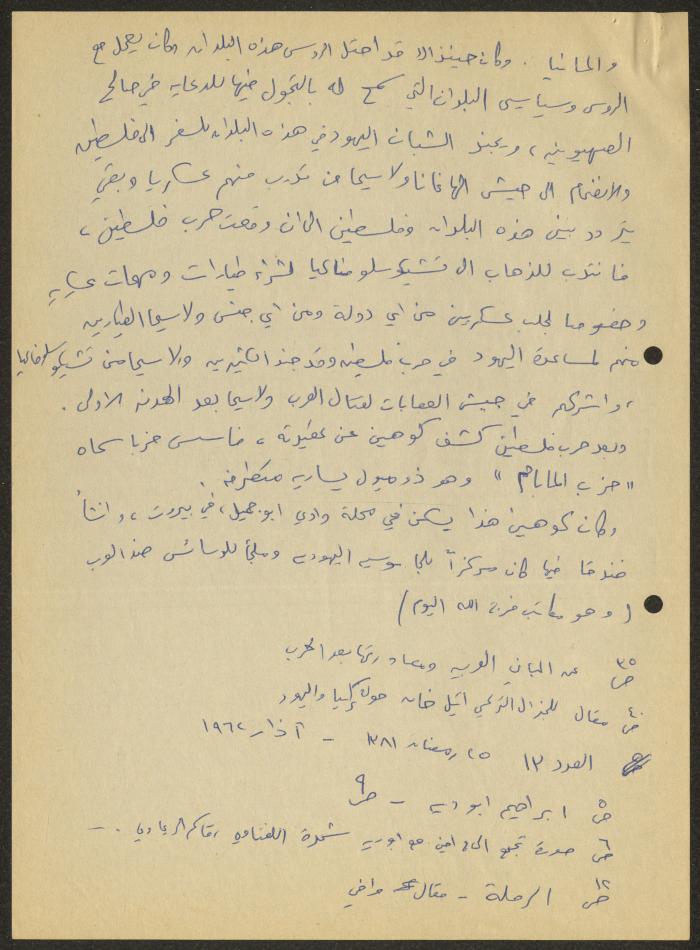 والمانيا . وكان حينذاك قد احتل الروس هذه البلدان وكان يعمل مع
الروس وسياسيي البلدان التي سمح له بالتجول فيها للدعايه في صالح
الصهيونيه ، ويجند الشبان اليهود في هذه البلدان للسفر الى فلسطين
والانضمام الى جيش الهاغانا ولا سيما من تدرب منهم عسكريا وبقي
يتردد بين هذه البلدان وفلسطين الى ان وقعت حرب فلسطين ،
فانتدب للذهاب الى تشيكوسلوفاكيا لشراء طيارات ومهمات عسكريه
وخصوصا لجلب عسكريين من اي دولة ومن اي جنس ولا سيما الطيارين
منهم لمساعدة اليهود في حرب فلسطين وقد جند الكثيرين ولا سيما من تشيكوسلوفاكيا
، واشركهم في جيش العصابات لقتال العرب ولا سيما بعد الهدنه الاولى .
وبعد حرب فلسطين كشف كوهين عن عقيدته ، فاسس حزبا سماه
"حزب المابام" وهو ذو ميول يساريه متطرفه .
وكان كوهين هذا يسكن في محلة وادي ابو جميل ، في بيروت ، وانشأ
فندقا فيها كان مركزاً للجاسوسيه اليهوديه وملجأ للدسائس ضد العرب
( وهو مكاتب فرج الله اليوم )
ص ٣٥ عن المباني العربيه ومصادرتها بعد الحرب
ص ٤٠ مقال للجنرال التركي اتيل خان حول تركيا واليهود
العدد ١٣ ٢٥ رمضان ١٣٨١ - آذار ١٩٦٢
ص ٥ ابراهيم ابو ديه - ص ٩
ص ٦ صورة تجمع الحاج امين مع ابو ديه شحدة
ص ١٢ الرملة - مقال وافي